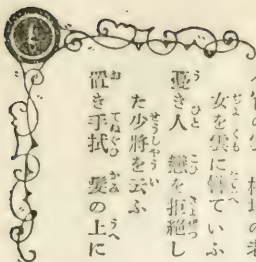 女を雲に譬ていふ
憂き人 戀を拒絶し
た少將を云ふ
置き手拭 髮の上に